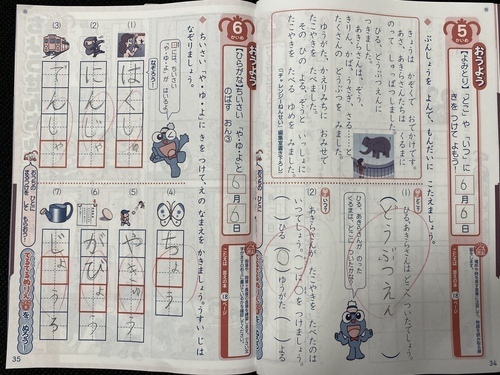 おうよう
5
かいめ
【よみとり】「どこ」や「いつ」に
きを つけて よもう!
6
月
6
日
ぶんしょうを よんで、もんだいに こたえましょう。
きょうは かぞくで おでかけです。
あさ、あきらさんたちは くるまに
のって しゅっぱつしました。
ひる、どうぶつえんに
つきました。
あきらさんは、ぞう、
きりん、かば、うさぎ、さる……と、
たくさんの どうぶつを みました。
ゆうがた、かえりみちに おみせで
たこやきを たべました。
その ひの よる、ぞうと いっしょに
たこやきを たべる ゆめを みました。
(1) ひる、あきらさんは どこへ ついたでしょう。
どうぶつえん
ひる、あきらさんが のった
くるまは、どこに ついたかな?
(2) あきらさんが たこやきを たべたのは
いつでしょう。
( )ひる
( )ゆうがた
( )よる
34
おうよう
6
かいめ
【ひらがな】ちいさい 「や・ゆ・よ」と
のばす おん③
6
月
6
日
ちいさい、「や・ゆ・よ」に きを つけて、えの なまえを かきましょう。うすい じは
なぞりましょう。
には、ちいさい
「や・ゆ・よ」が
はいるよ。
なぞろう!
(1)
はくしゅ
(2)
にんじゃ
(3)
でんしゃ
(4)
ちょう
(5)
やきゅう
(6)
がびょう
(7)
じょうろ
35